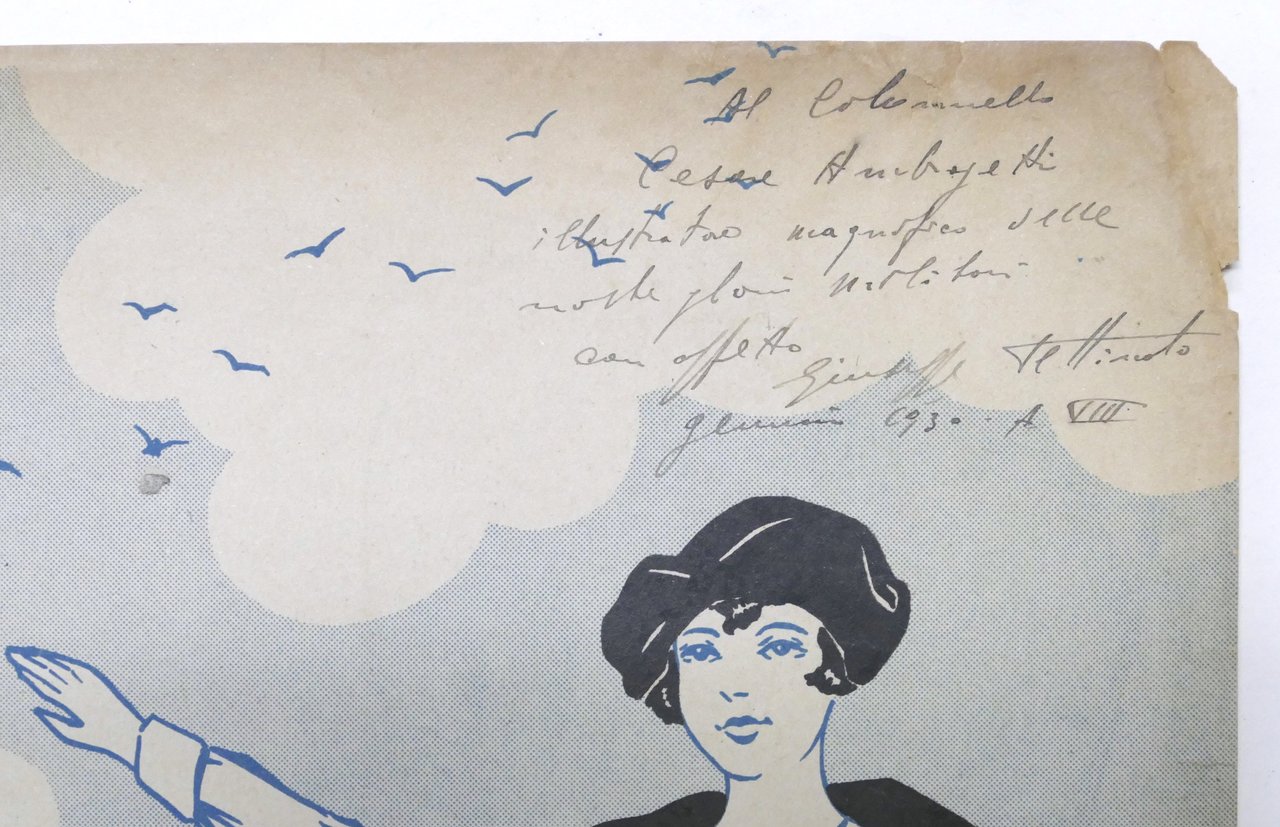 Al Colonnello
Cesare Ambrogetti
illustratore magnifico delle
nostre glorie militari
con affetto Giuseppe Pettinato
gennaio 1930 - A VIII